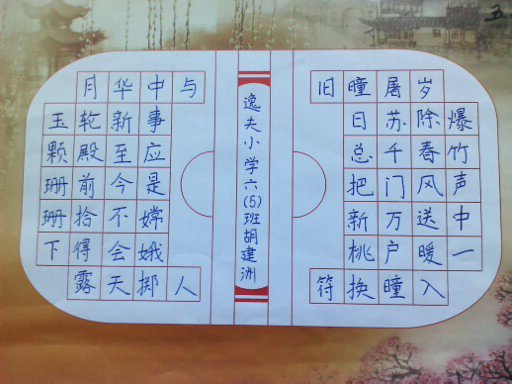 五
爆竹声中一
岁除春风送暖入
屠苏千门万户瞳
瞳日总把新桃换
旧符
逸夫小学六(5)班胡建洲
玉颗珊珊下
月轮殿前拾得露
华新至今不会天
中事应是嫦娥掷
与人